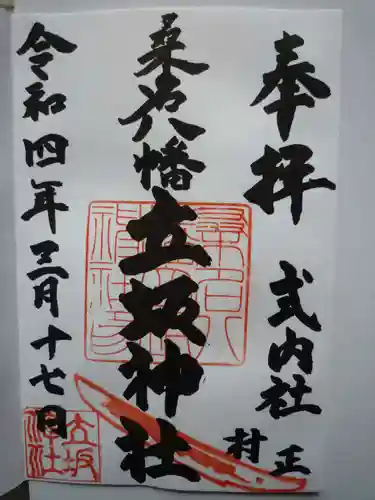 奉拝
式内社
村正
桑名八幡
立坂神社
令和四年三月十七日
立坂神社